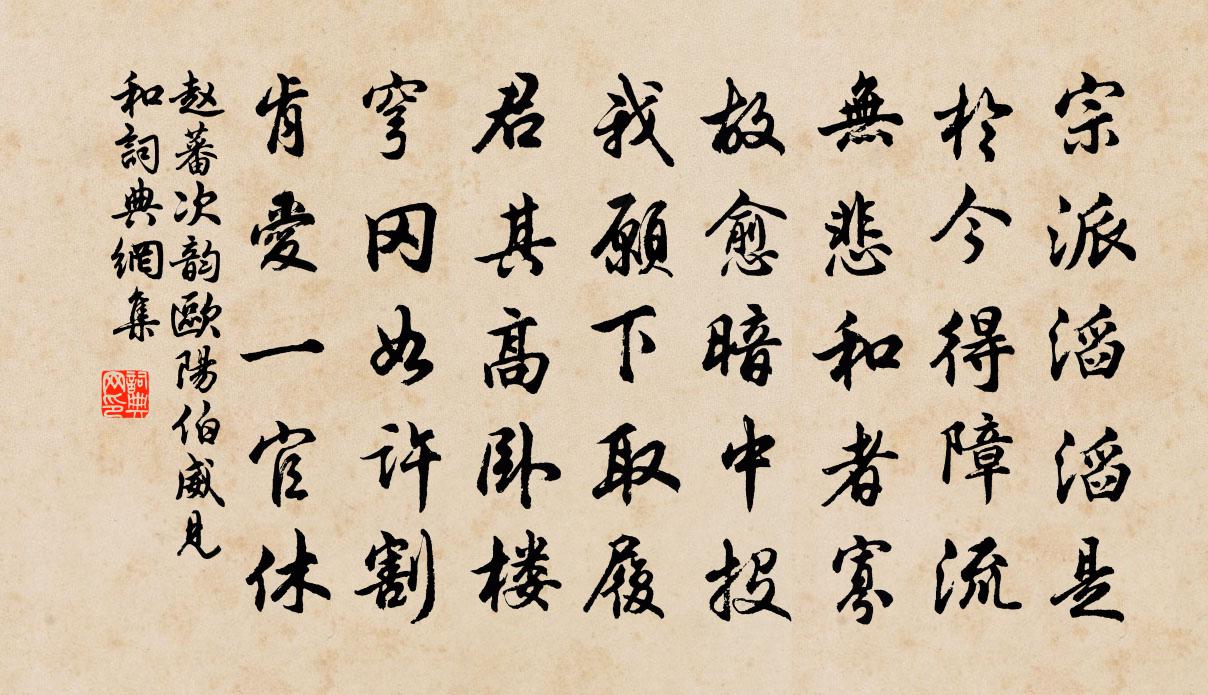 宗派滔滔是
於今得障流
無悲和者寡
故愈暗中投
我願下取履
君其高卧楼
穹冈如许割
肯愛一官休
赵蕃次韵歐陽伯威見
和詞典網集
詞典網印